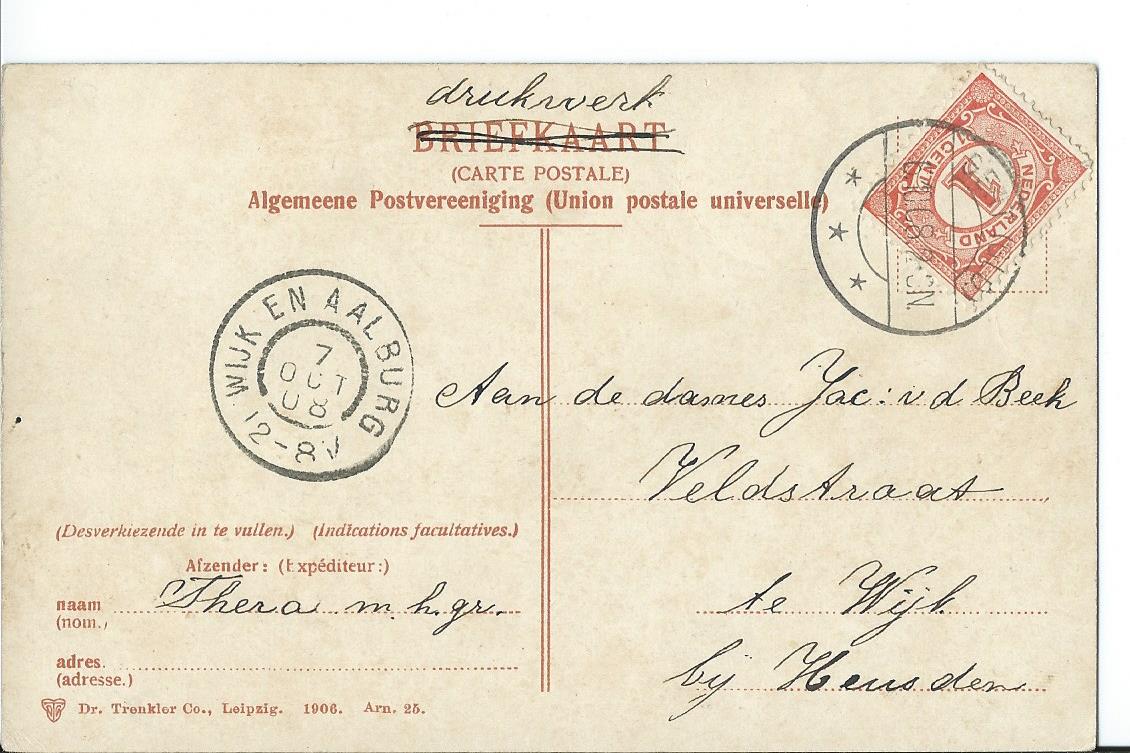 drukwerk
BRIEFKAART
(CARTE POSTALE)
Algemeene Postvereeniging (Union postale universelle)
NEDERLAND
1
1 CENT
WIJK EN AALBURG
7
OCT
08
12-8V
Aan de dames Jac: v d Beek
Veldstraat
te Wijk
bij Heusden
(Desverkiezende in te vullen.) (Indications facultatives.)
Afzender: (Expéditeur:)
naam Thera m. h. gr.
(nom.)
adres.
(adresse.)
Dr. Trenkler Co., Leipzig. 1906. Arn. 25.